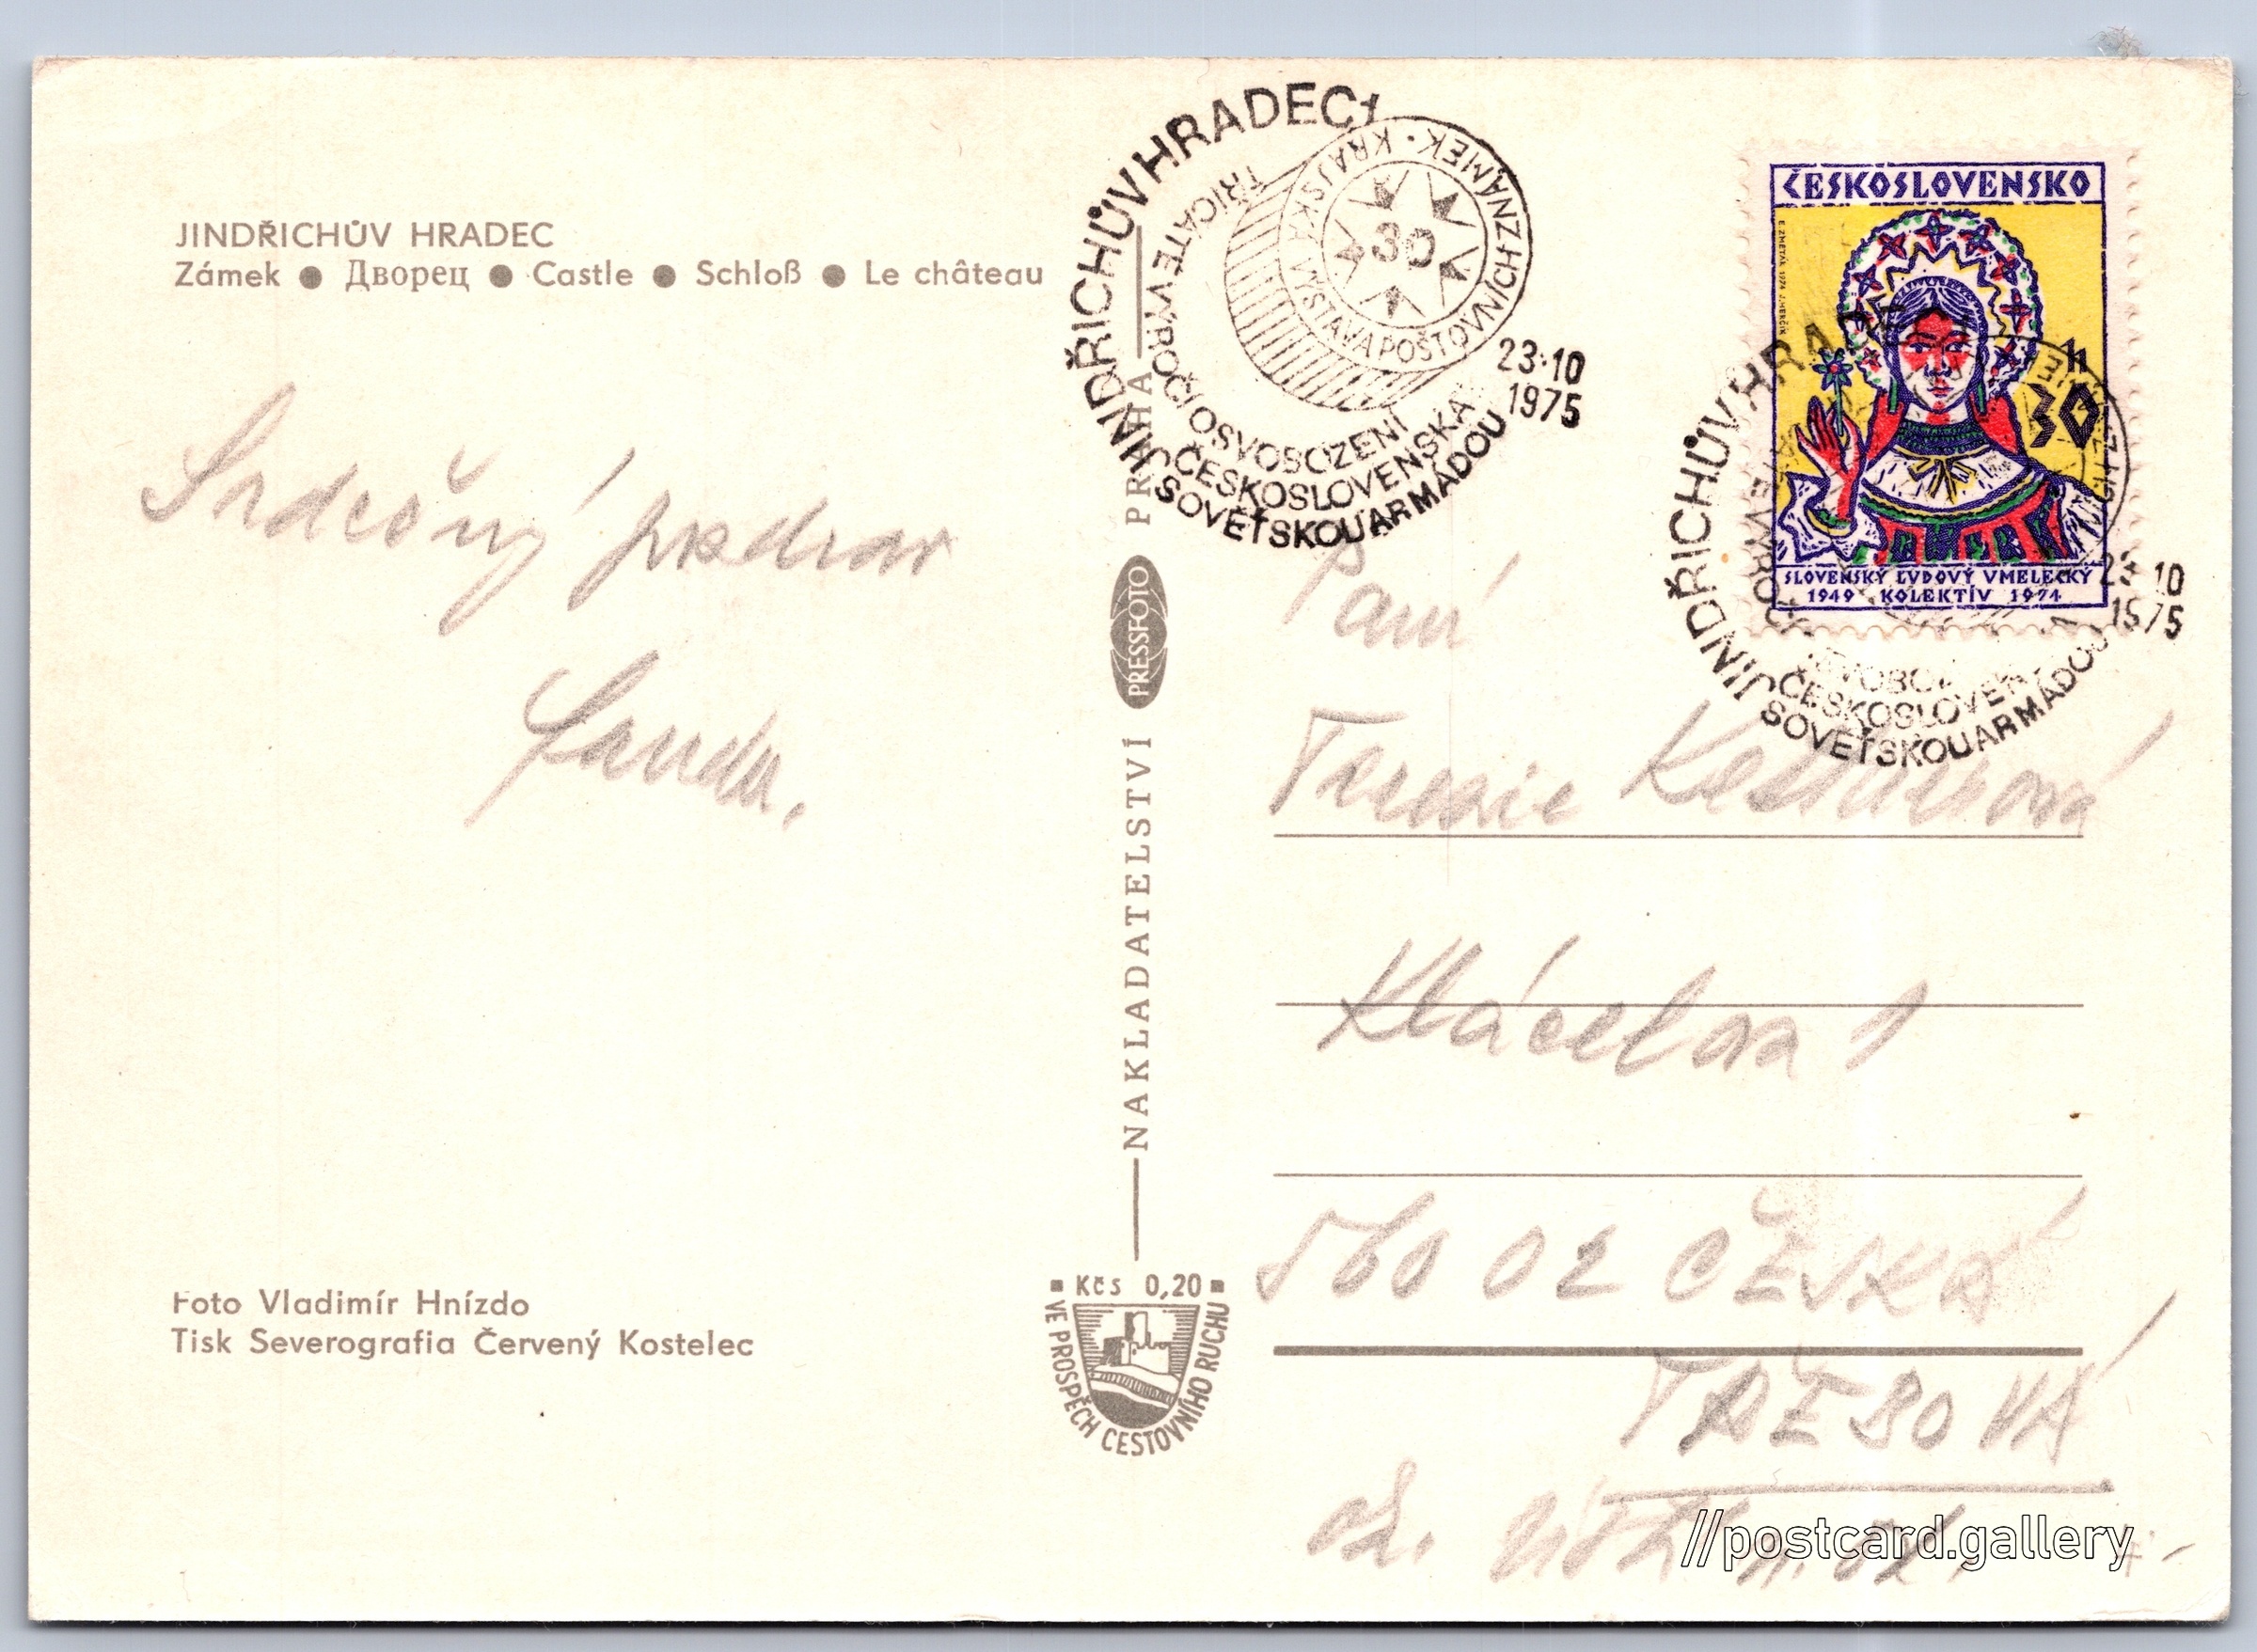 JINDŘICHŮV HRADEC
Zámek ● Дворец ● Castle ● Schloß ● Le château
Srdečný pozdrav
Foto Vladimír Hnízdo
Tisk Severografia Červený Kostelec
NAKLADATELSTVÍ PRESSFOTO PRAHA
Kčs 0,20
VE PROSPĚCH CESTOVNÍHO RUCHU
JINDŘICHŮV HRADEC 1
TŘICÁTÉ VÝROČÍ OSVOBOZENÍ
ČESKOSLOVENSKA
SOVĚTSKOU ARMÁDOU
KRAJSKÁ VÝSTAVA POŠTOVNÍCH ZNÁMEK
30
23.10
1975
ČESKOSLOVENSKO
E. ZMETÁK 1974 J. HERČÍK
h
30
SLOVENSKÝ ĽUDOVÝ UMELECKÝ
1949 KOLEKTÍV 1974
JINDŘICHŮV HRADEC
ČESKOSLOVEN
SOVĚTSKOU ARMÁDOU
23.10
1975
Paní
Terezie
Klácelova 1
560 02 ČESKÁ
TŘEBOVÁ
//postcard.gallery